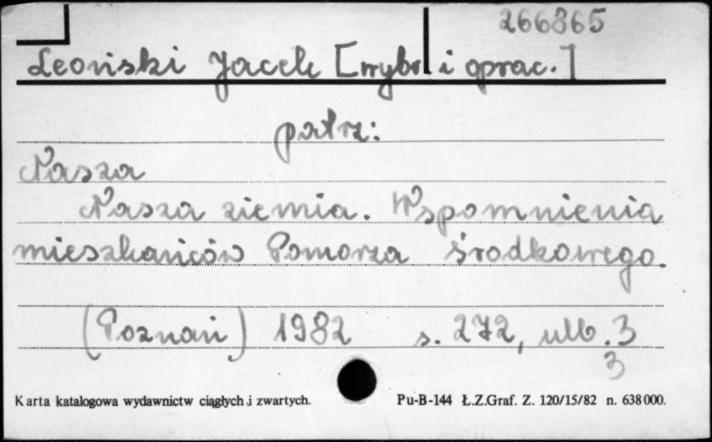 266865
Leoński Jacek [wybr i oprac.]
patrz:
Nasza
Nasza ziemia. Wspomnienia
mieszkańców Pomorza Środkowego.
(Poznań) 1982 s. 272, ulb. 3
3
Karta katalogowa wydawnictw ciągłych i zwartych. Pu-B-144 Ł.Z.Graf. Z. 120/15/82 n. 638000.